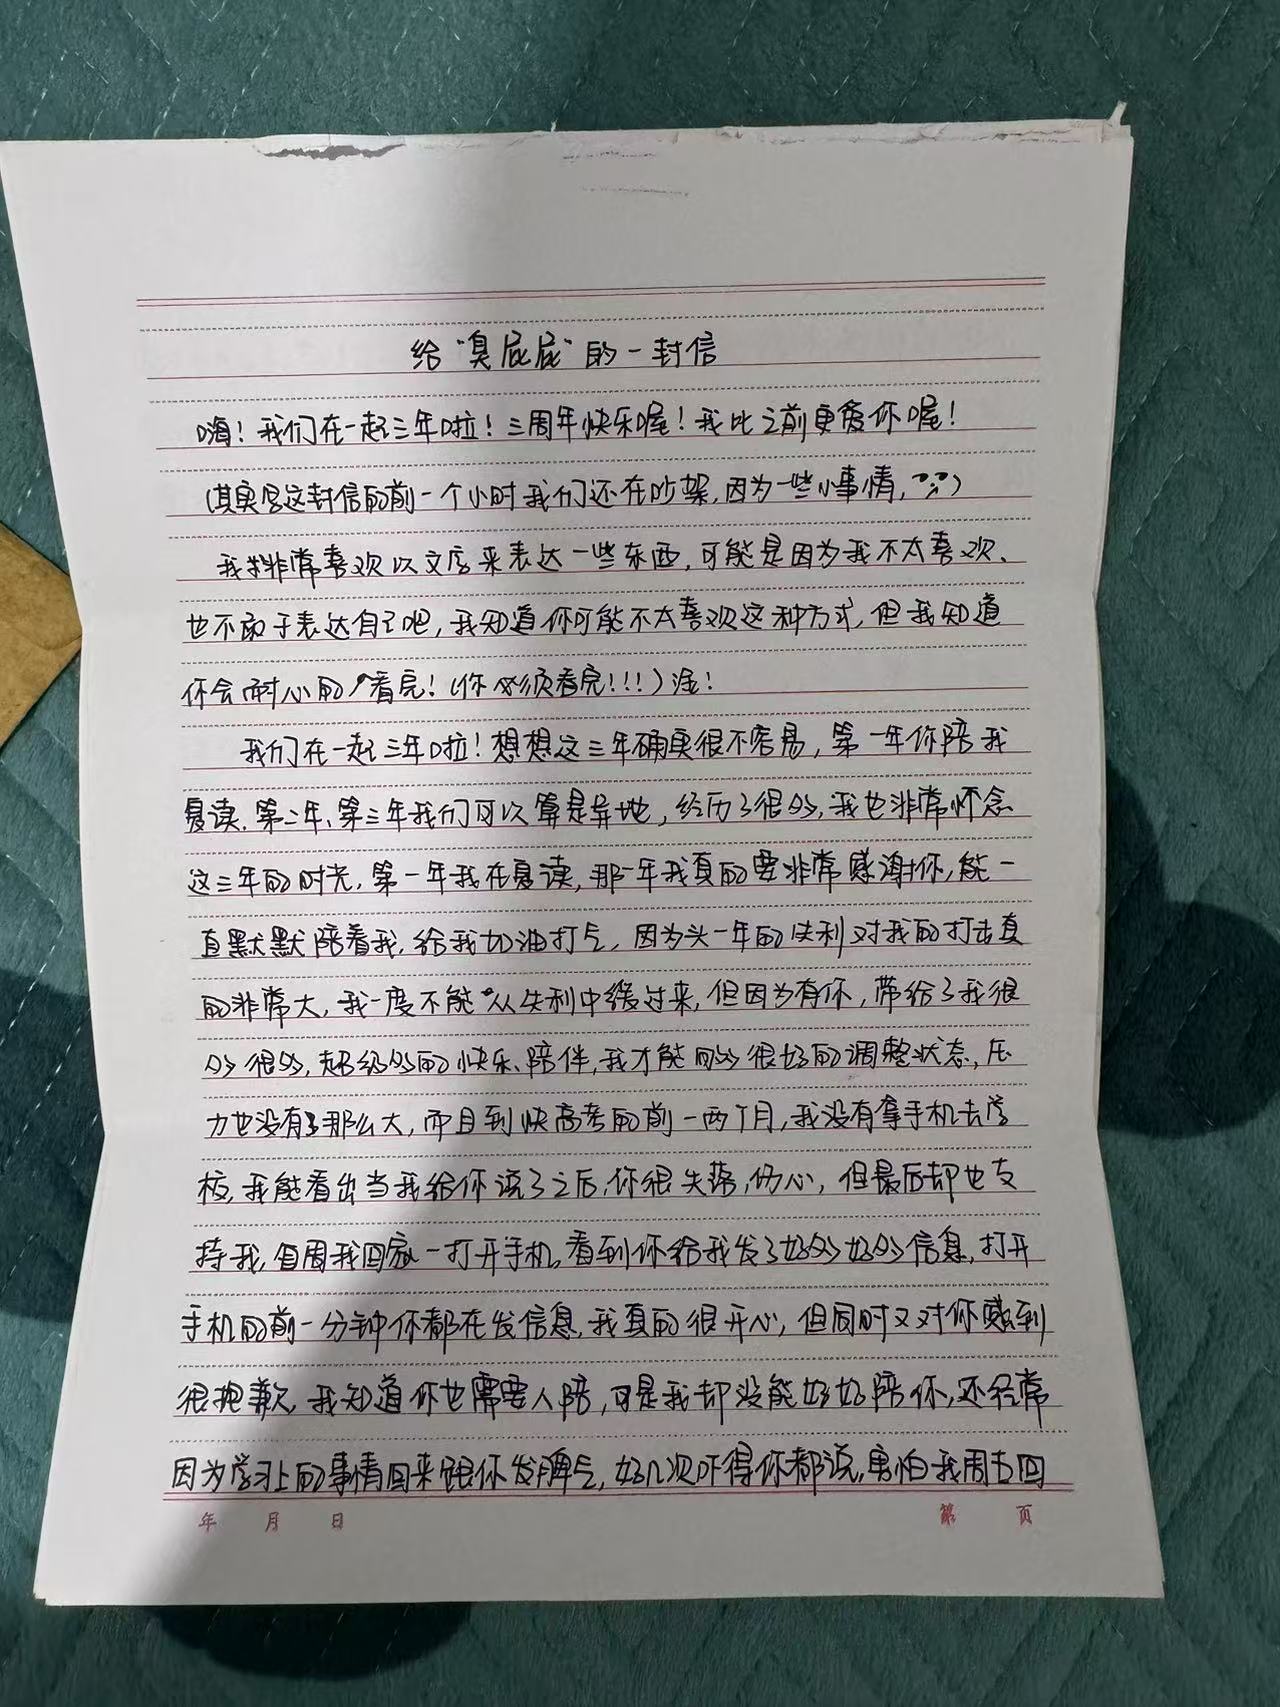 给"臭屁屁"的一封信
嗨！我们在一起三年啦！三周年快乐喔！我比之前更爱你喔！
(其实写这封信的前一个小时我们还在吵架,因为一些小事情,)
我非常喜欢以文字来表达一些东西,可能是因为我不太喜欢、
也不敢于表达自己吧,我知道你可能不太喜欢这种方式,但我知道
你会耐心的看完！(你必须看完!!!)注！
我们在一起三年啦！想想这三年确实很不容易,第一年你陪我
复读,第二年、第三年我们可以算是异地,经历了很多,我也非常怀念
这三年的时光,第一年我在复读,那一年我真的要非常感谢你,能一
直默默陪着我,给我加油打气,因为头一年的失利对我的打击真
的非常大,我一度不能从失利中缓过来,但因为有你,带给了我很
多很多,超级多的快乐、陪伴,我才能够很好的调整状态,压
力也没有了那么大,而且到快高考的前一两个月,我没有拿手机去学
校,我能看出当我给你说了之后,你很失落,伤心,但最后却也支
持我,每周我回家一打开手机,看到你给我发了好多好多信息,打开
手机的前一分钟你都在发信息,我真的很开心,但同时又对你感到
很抱歉,我知道你也需要人陪,可是我却没能好好陪你,还经常
因为学习上的事情回来跟你发脾气,好几次吓得你都说,害怕我周五回
年 月 日 第 页